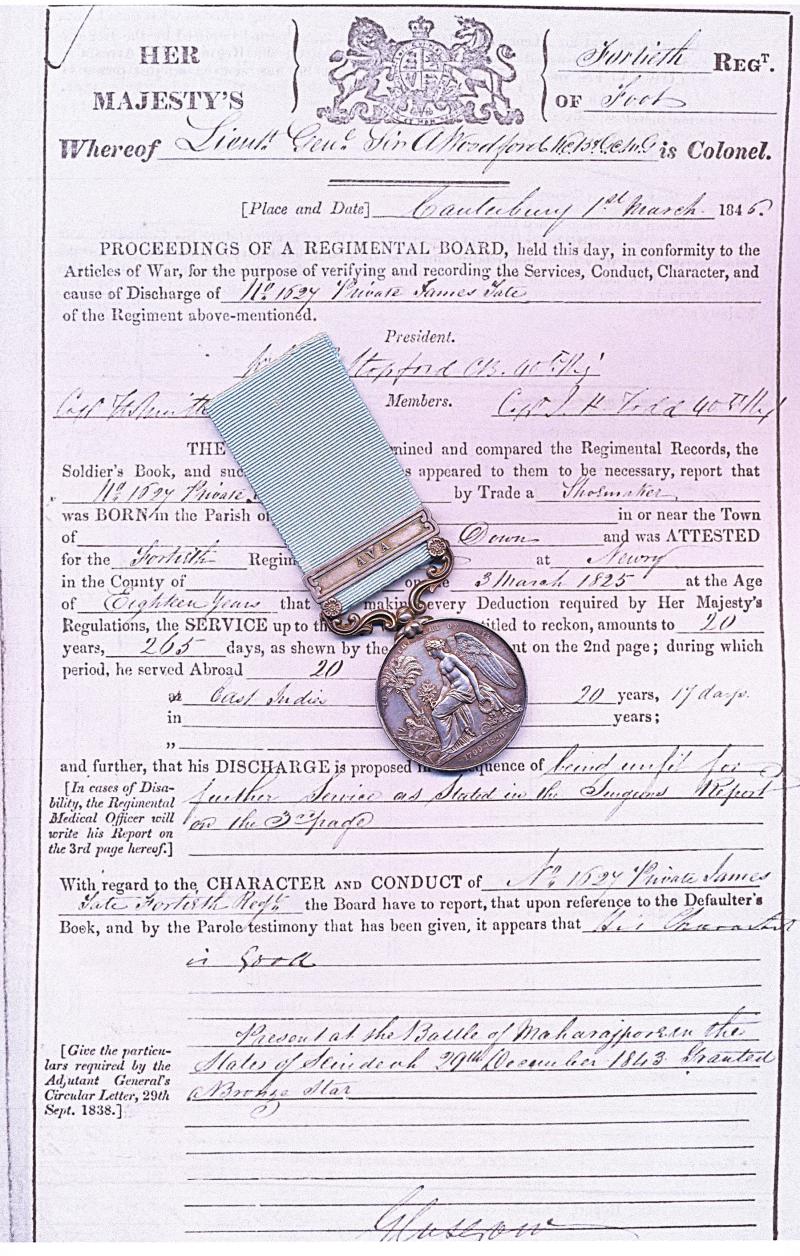 HER Fortieth REGT.
MAJESTY'S OF Foot
Whereof Lieut. Genl. Sir A Woodford K.C.B. & G.C.M.G. is Colonel.
[Place and Date] Canterbury 1st March 1846.
PROCEEDINGS OF A REGIMENTAL BOARD, held this day, in conformity to the
Articles of War, for the purpose of verifying and recording the Services, Conduct, Character, and
cause of Discharge of No. 1627 Private James Tate
of the Regiment above-mentioned.
President.
Stopford CB. 40th Regt
Capt Members. Capt J. H. Todd 40th Regt
THE mined and compared the Regimental Records, the
Soldier's Book, and suc s appeared to them to be necessary, report that
No. 1627 Private by Trade a Shoemaker
was BORN in the Parish of in or near the Town
of Down and was ATTESTED
for the Fortieth Regim at Newry
in the County of on the 3 March 1825 at the Age
of Eighteen Years that making every Deduction required by Her Majesty's
Regulations, the SERVICE up to th titled to reckon, amounts to 20
years, 265 days, as shewn by the nt on the 2nd page; during which
period, he served Abroad 20
at East Indies 20 years, 17 days.
in years;
"
and further, that his DISCHARGE is proposed in quence of being unfit for
[In cases of Disa-
bility, the Regimental
Medical Officer will
write his Report on
the 3rd page hereof.]
further Service as Stated in the Surgeons Report
on the 3rd page
With regard to the CHARACTER AND CONDUCT of No. 1627 Private James
Tate Fortieth Regt. the Board have to report, that upon reference to the Defaulter's
Book, and by the Parole testimony that has been given, it appears that His Character
is Good
[Give the particu-
lars required by the
Adjutant General's
Circular Letter, 29th
Sept. 1838.]
Present at the Battle of Maharajpore in the
States of Scindeah 29th December 1843 Granted
a Bronze Star
AVA